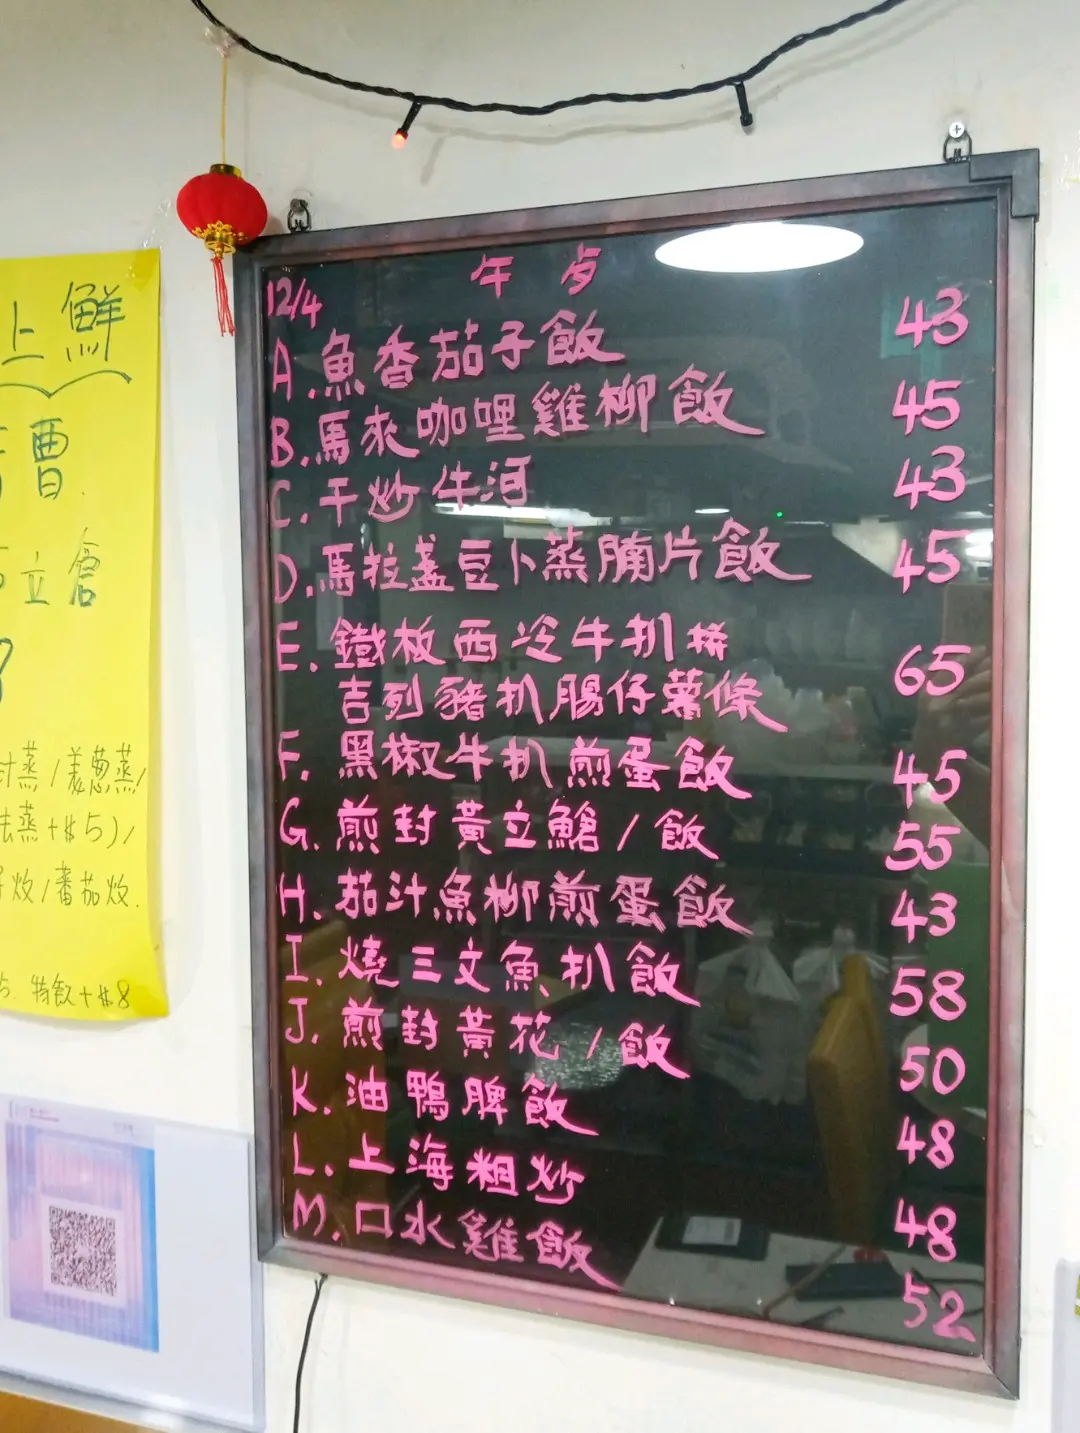 上鮮
曹
立倉
封蒸/姜葱蒸/
法蒸+#5)/
炆/番茄炆.
特飲+#8
午歺
12/4
A.魚香茄子飯 43
B.馬來咖哩雞柳飯 45
C.干炒牛河 43
D.馬拉盞豆卜蒸腩片飯 45
E.鐵板西冷牛扒拼
吉列豬扒腸仔薯條 65
F.黑椒牛扒煎蛋飯 45
G.煎封黃立鯧/飯 55
H.茄汁魚柳煎蛋飯 43
I.燒三文魚扒飯 58
J.煎封黃花/飯 50
K.油鴨脾飯 48
L.上海粗炒 48
M.口水雞飯 52